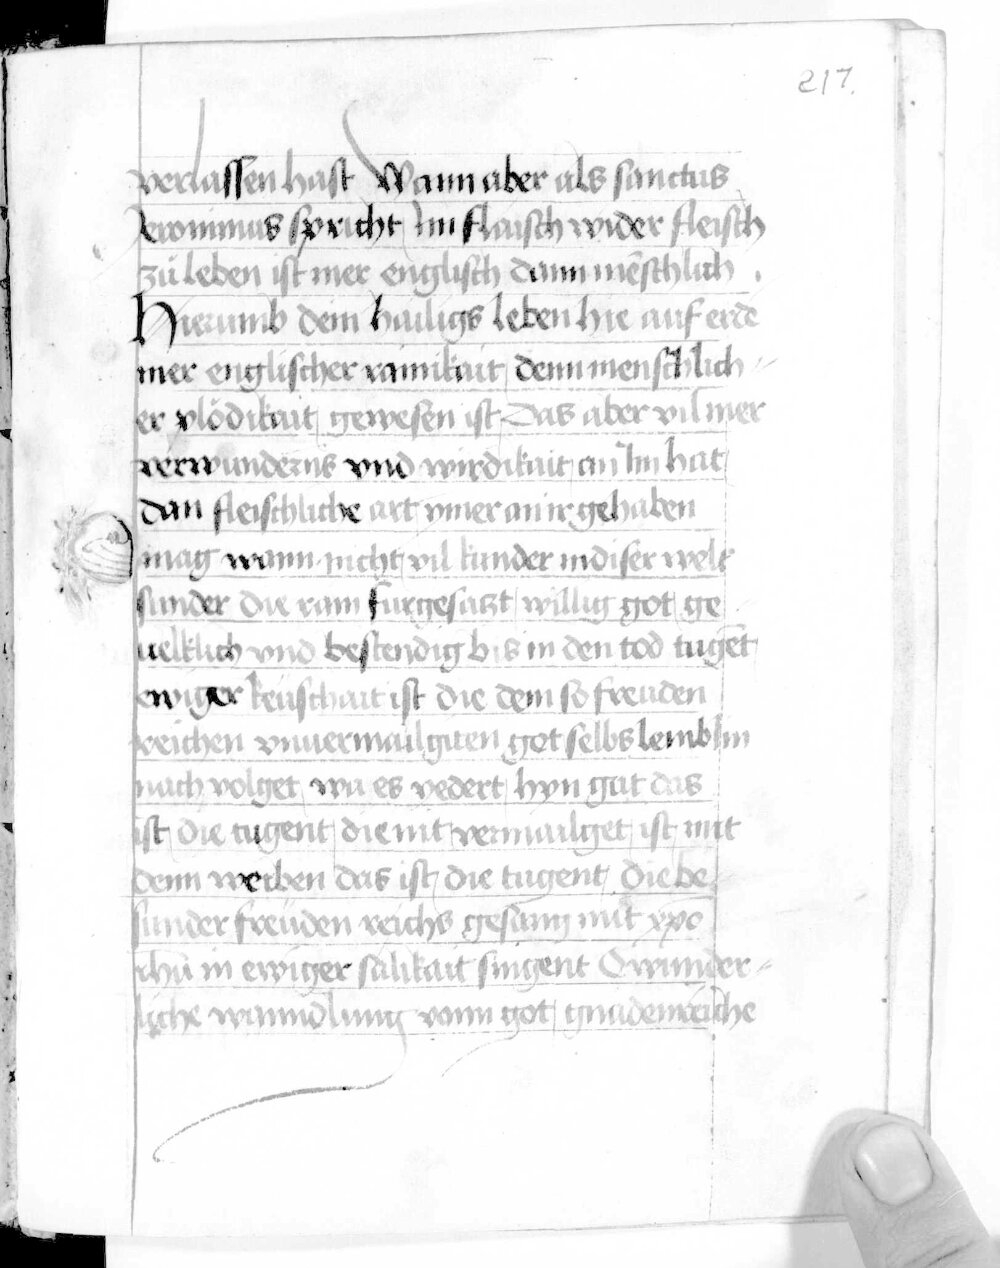 217.
verlassen hast Wann aber als sanctus
Jeronimus spricht Im flaisch wider fleisch
zů leben ist mer englisch dann mēschlich .
Hierumb dein hailigs leben hie auf erde
mer englischer rainikait denn menschlich-
er plödikait gewesen ist Das aber vil mer
verwunderns vnd wirdikait in Im hat
dan fleischliche art ymer an ir gehaben
mag wann nicht vil kinder in diser welt
sunder die rain furgesatzt willig got ge
uelklich vnd bestendig bis in den tod tugēt
ewiger keuschait ist die dem so freuden
reichen vnuermailgiten got selbs lemblin
nach volget wa es yedert hyn gat das
ist die tugent die nit vermailget ist mit
denn weiben das ist die tugent die be
sunder freüden reichs gesang mit xp̄o
ihū in ewiger sälikait singent O wunder-
liche wanndlung vonn got gnadenreiche